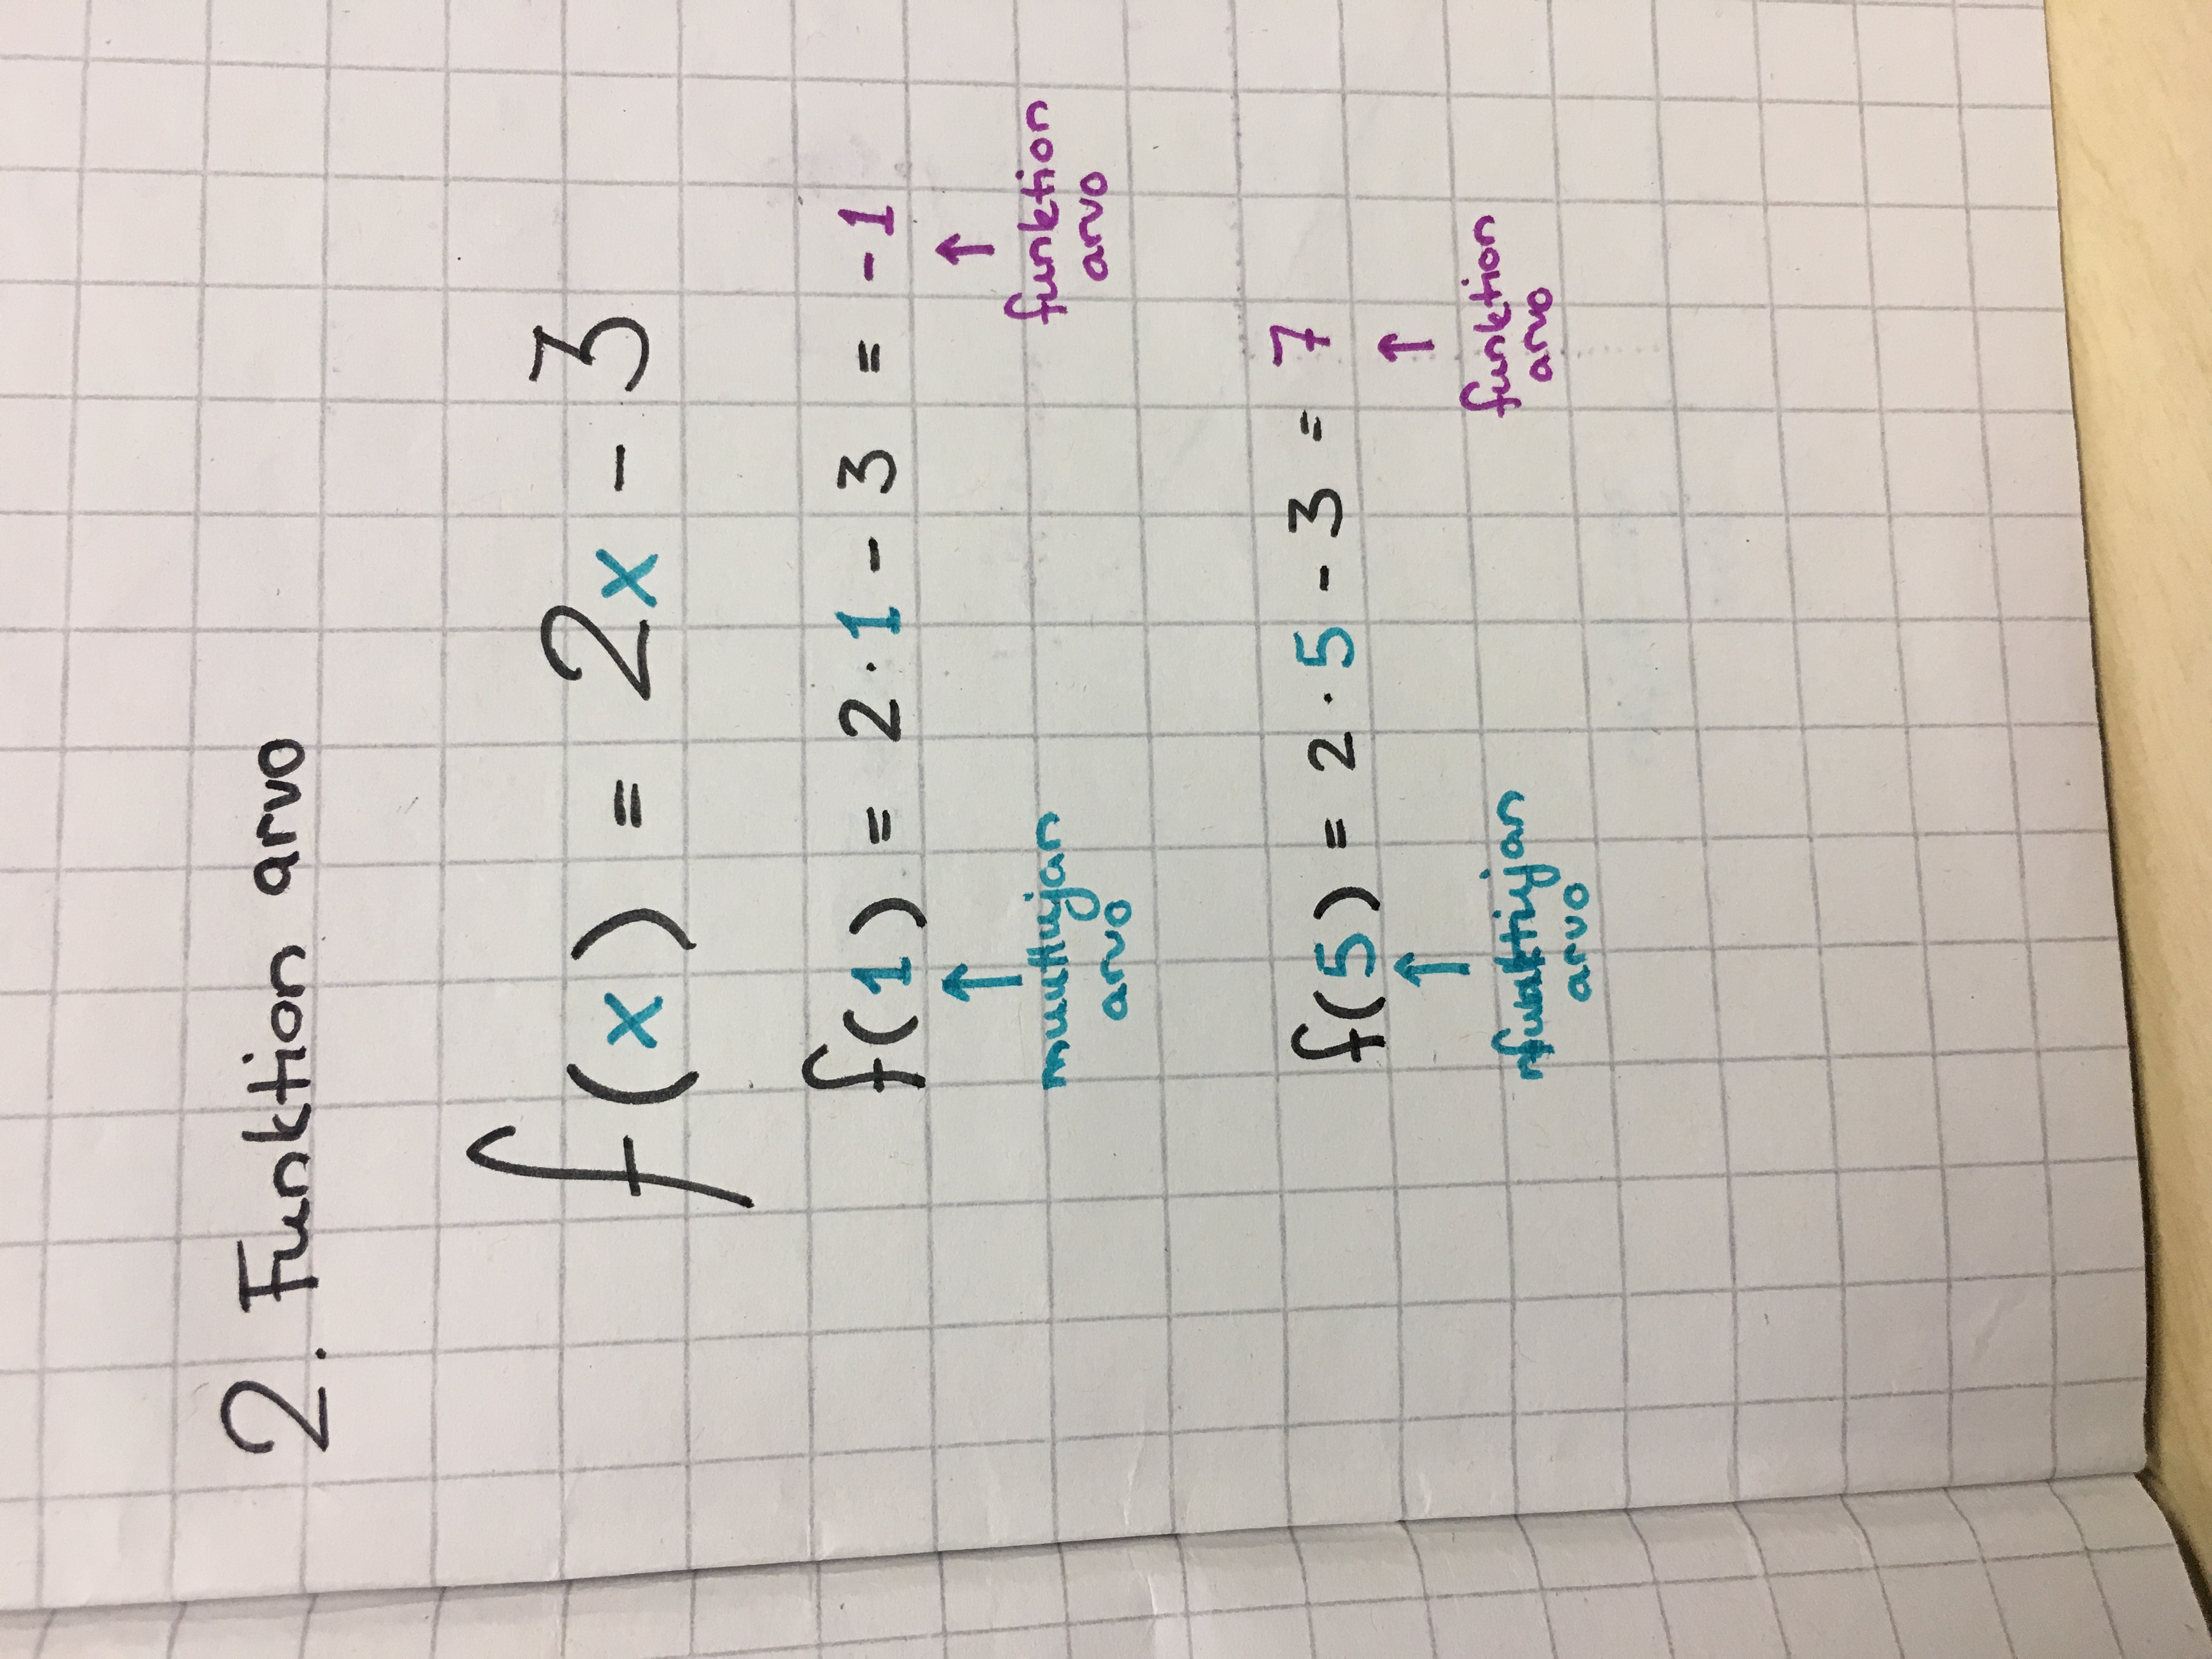 2. Funktion arvo
f(x) = 2x - 3
f(1) = 2 · 1 - 3 = -1
↑ ↑
muuttujan funktion
arvo arvo
f(5) = 2 · 5 - 3 = 7
↑ ↑
funktion
arvo arvo